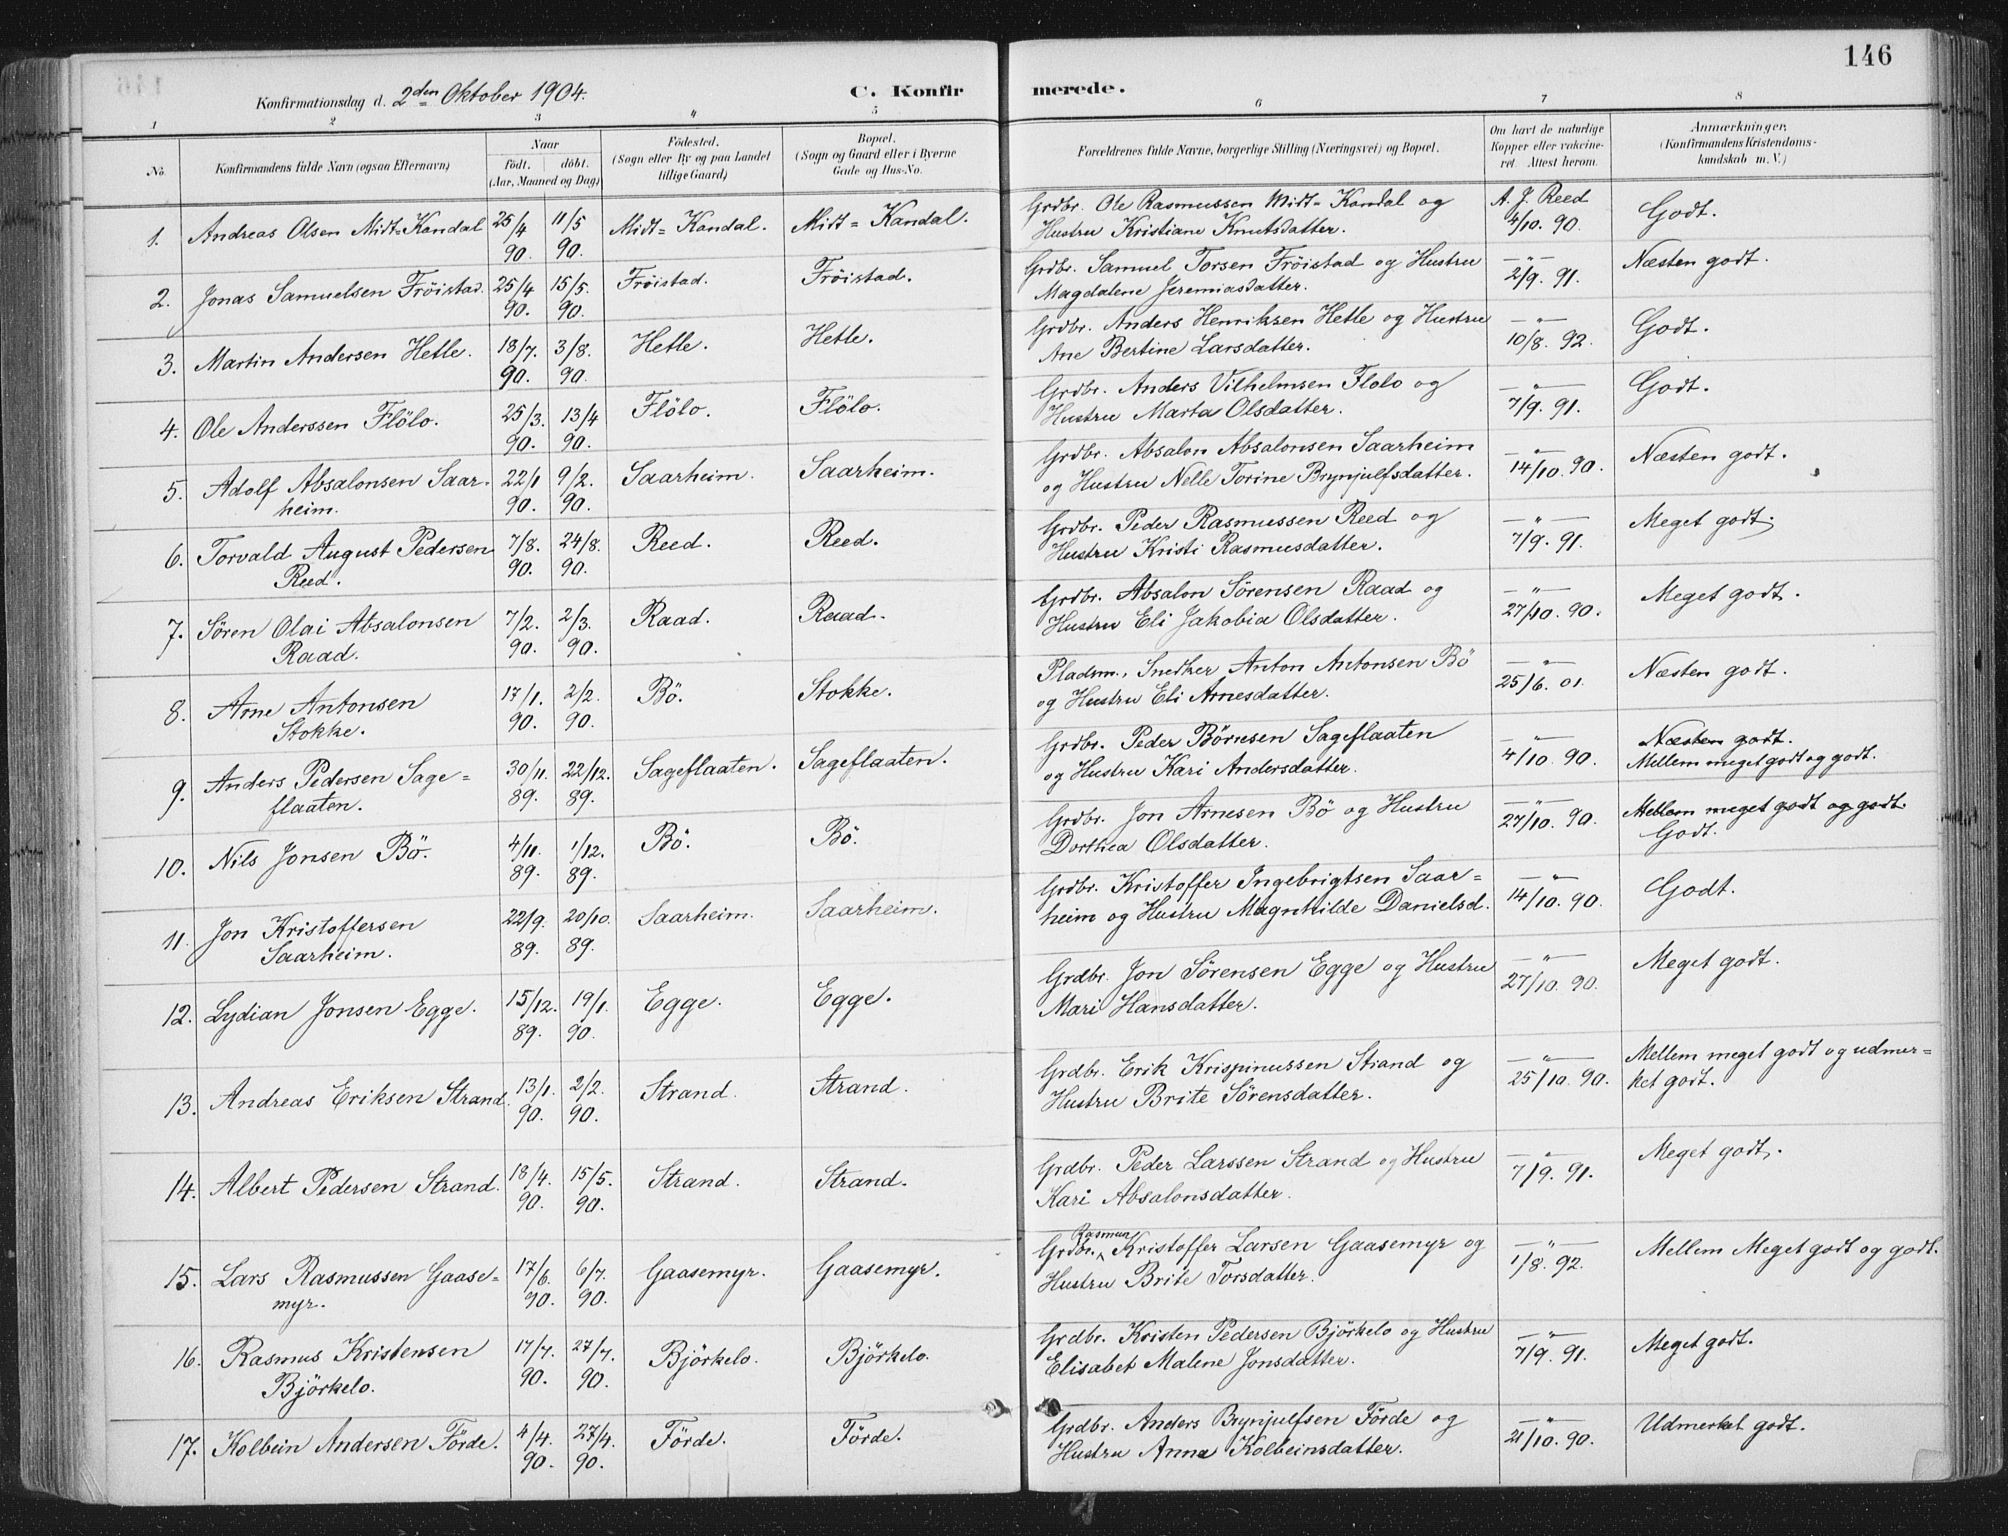 146
Konfirmationsdag d. 2den Oktober 1904. C. Konfirmerede.
1 2 3 4 5 6 7 8
No. Konfirmandens fulde Navn (ogsaa Efternavn) Naar født. døbt. (Aar, Maaned og Dag) Fødested. (Sogn eller By og paa Landet tillige Gaard) Bopæl. (Sogn og Gaard eller i Byerne Gade og Hus-No. Forældrenes fulde Navne, borgerlige Stilling (Næringsvei) og Bopæl. Om havt de naturlige Kopper eller vakcineret. Attest herom. Anmærkninger. (Konfirmandens Kristendomskundskab m. V.)
1. Andreas Olsen Midt=Kandal 25/4 90. 11/5 90. Midt=Kandal. Midt=Kandal. Grdbr. Ole Rasmussen Midt=Kandal og Hustru Kristiane Knutsdatter. A. J. Reed 4/10. 90. Godt.
2. Jonas Samuelsen Fröistad. 25/4 90. 15/5. 90. Fröistad. Fröistad. Grdbr. Samuel Torsen Fröistad og Hustru Magdalene Jeremiasdatter. —"— 2/9. 91. Næsten godt.
3. Martin Andersen Hetle. 18/7. 90. 3/8. 90. Hetle. Hetle. Grdbr. Anders Henriksen Hetle og Hustru Ane Bertine Larsdatter. —"— 10/8. 92. Godt.
4. Ole Anderssen Flölo. 25/3. 90. 13/4 90. Flölo. Flölo. Grdbr. Anders Vilhelmsen Flolo og Hustru Marta Olsdatter. —"— 7/9. 91. Godt.
5. Adolf Absalonsen Saarheim. 22/1 90. 9/2. 90. Saarheim. Saarheim. Grdbr. Absalon Absalonsen Saarheim og Hustru Nelle Torine Brynjulfsdatter. —"— 14/10. 90. Næsten godt.
6. Torvald August Pedersen Reed. 7/8. 90. 24/8. 90. Reed. Reed. Grdbr. Peder Rasmussen Reed og Hustru Kristi Rasmusdatter. —"— 7/9. 91. Meget godt.
7. Sören Olai Absalonsen Raad. 7/2. 90. 2/3. 90. Raad. Raad. Grdbr. Absalon Sörensen Raad og Hustru Eli Jakobia Olsdatter. —"— 27/10. 90. Meget godt.
8. Arne Antonsen Stokke. 17/1. 90. 2/2. 90. Bö. Stokke. Pladsm., Snedker Anton Antonsen Bö og Hustru Eli Arnesdatter. —"— 25/6. 01. Næsten godt.
9. Anders Pedersen Sage=flaaten. 30/11. 89. 22/12. 89. Sageflaaten. Sageflaaten. Grdbr. Peder Börnesen Sageflaaten og Hustru Kari Andersdatter. —"— 4/10. 90. Næsten godt. Mellem meget godt og godt.
10. Nils Jonsen Bö. 4/11. 89. 1/12. 89. Bö. Bö. Grdbr. Jon Arnesen Bö og Hustru Dorthea Olsdatter. —"— 27/10. 90. Mellem meget godt og godt. Godt.
11. Jon Kristoffersen Saarheim. 22/9. 89. 20/10. 89. Saarheim. Saarheim. Grdbr. Kristoffer Ingebrigtsen Saar=heim og Hustru Magnhilde Danielsd. —"— 14/10. 90. Godt.
12. Lydian Jonsen Egge. 15/12. 89. 19/1. 90. Egge. Egge. Grdbr. Jon Sörensen Egge og Hustru Mari Hansdatter. —"— 27/10. 90. Meget godt.
13. Andreas Eriksen Strand. 13/1. 90. 2/2. 90. Strand. Strand. Grdbr. Erik Krispinussen Strand og Hustru Brite Sörensdatter. —"— 25/10. 90. Mellem meget godt og udmer=ket godt.
14. Albert Pedersen Strand. 18/4. 90. 15/5. 90. Strand. Strand. Grdbr. Peder Larssen Strand og Hustru Kari Absalonsdatter. —"— 7/9. 91. Meget godt.
15. Lars Rasmussen Gaase=myr. 17/6. 90. 6/7. 90. Gaasemyr. Gaasemyr. Grdbr. Rasmus Kristoffer Larsen Gaasemyr og Hustru Brite Torsdatter. —"— 1/8. 92. Mellem Meget godt og godt.
16. Rasmus Kristensen Björkelo. 17/7. 90. 27/7. 90. Björkelo. Björkelo. Grdbr. Kristen Pedersen Björkelo og Hustru Elisabet Malene Jonsdatter. —"— 7/9. 91. Meget godt.
17. Kolbein Andersen Förde. 4/4. 90. 27/4. 90. Förde. Förde. Grdbr. Anders Brynjulfsen Förde og Hustru Anna Kolbeinsdatter. —"— 21/10. 90. Udmerket godt.